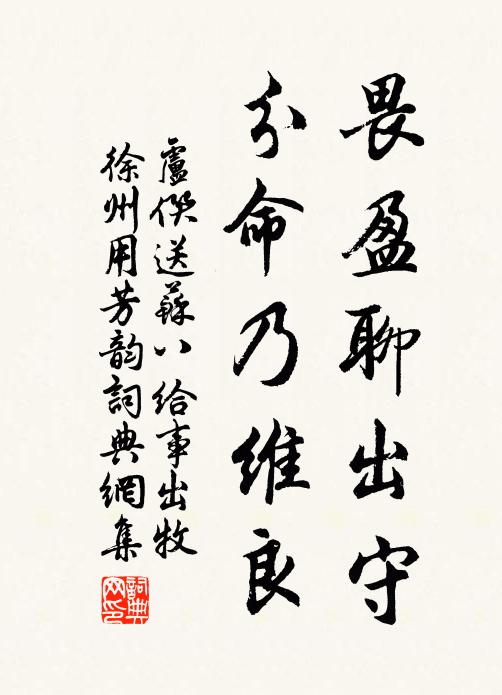 畏盈聊出守
分命乃維良
盧僎送蘇八給事出牧
徐州用芳韵詞典網集
詞典網印